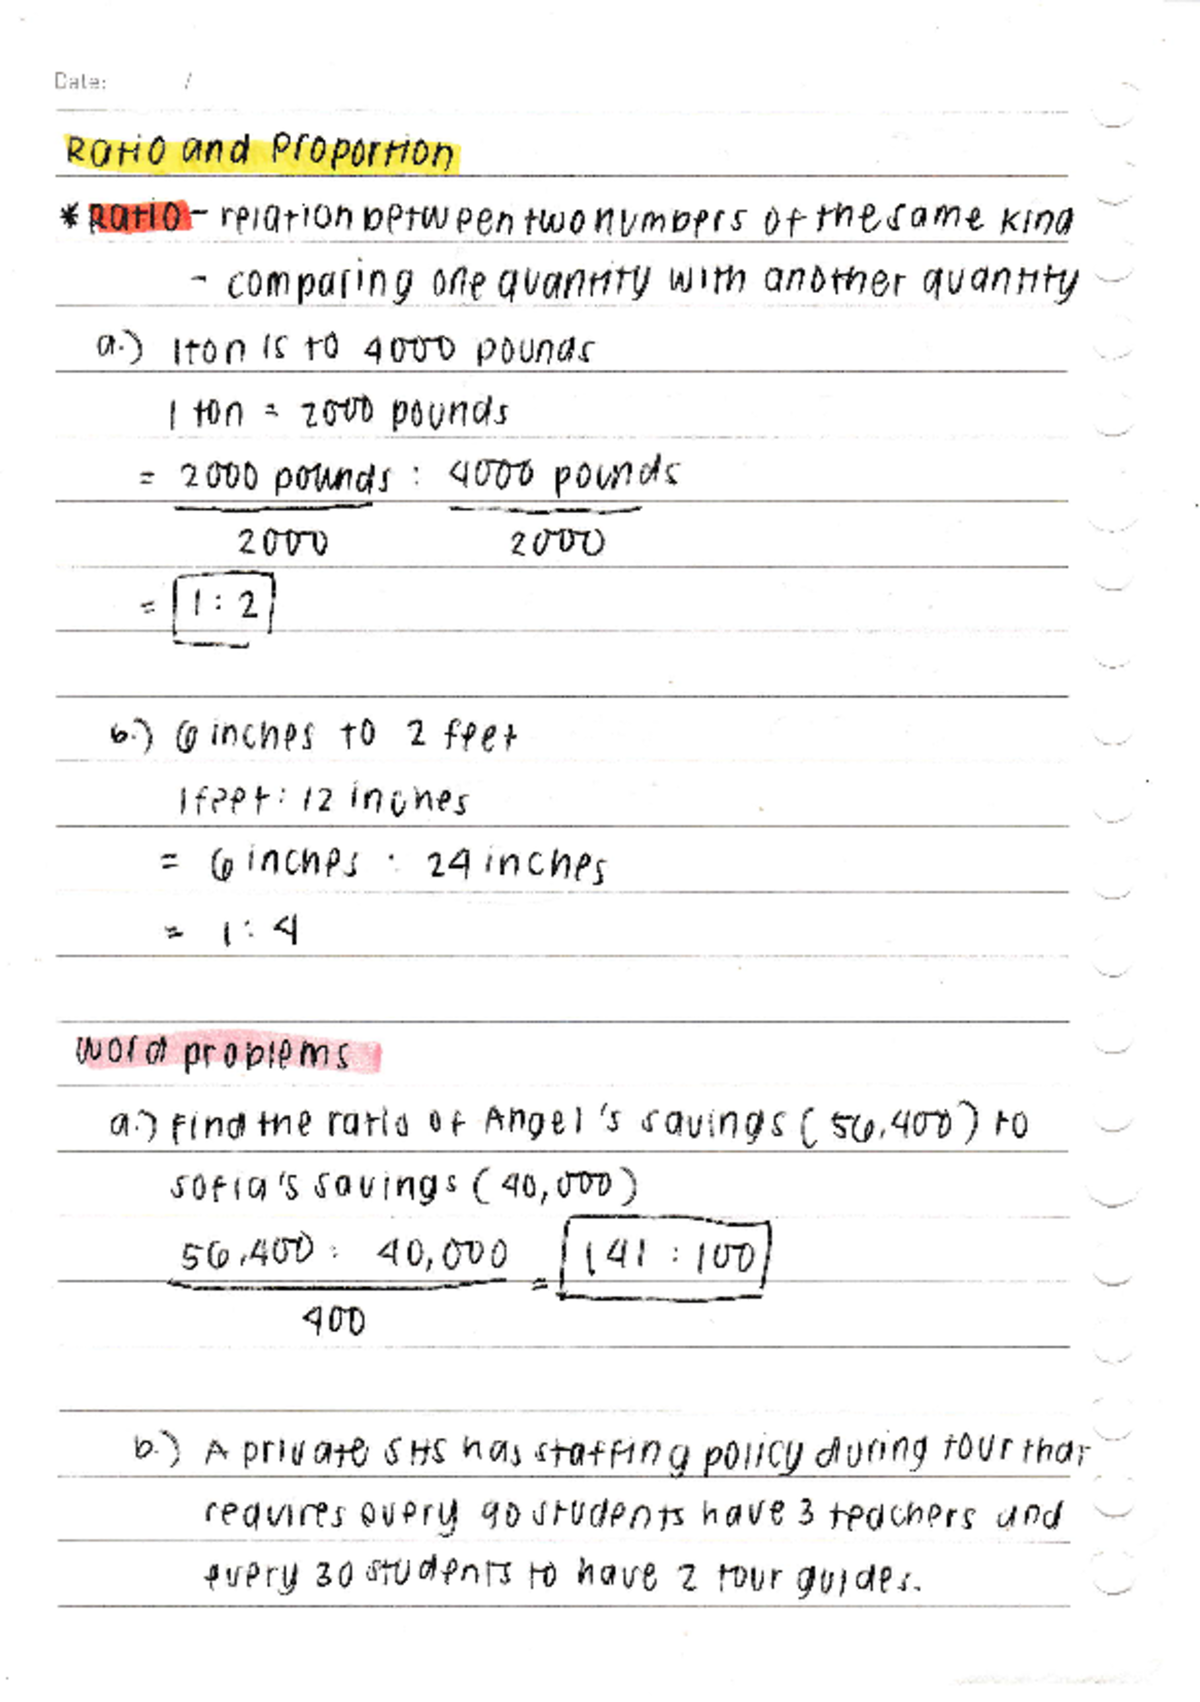 Date: /
Ratio and Proportion
* Ratio - relation between two numbers of the same kind
- comparing one quantity with another quantity
a.) 1 ton is to 4000 pounds
1 ton = 2000 pounds
= 2000 pounds : 4000 pounds
2000 2000
= 1 : 2
b.) 6 inches to 2 feet
1 feet : 12 inches
= 6 inches : 24 inches
= 1 : 4
Word problems
a.) Find the ratio of Angel's savings (56,400) to
Sofia's savings (40,000)
56,400 : 40,000 = 141 : 100
400
b.) A private SHS has staffing policy during tour that
requires every 90 students have 3 teachers and
every 30 students to have 2 tour guides.